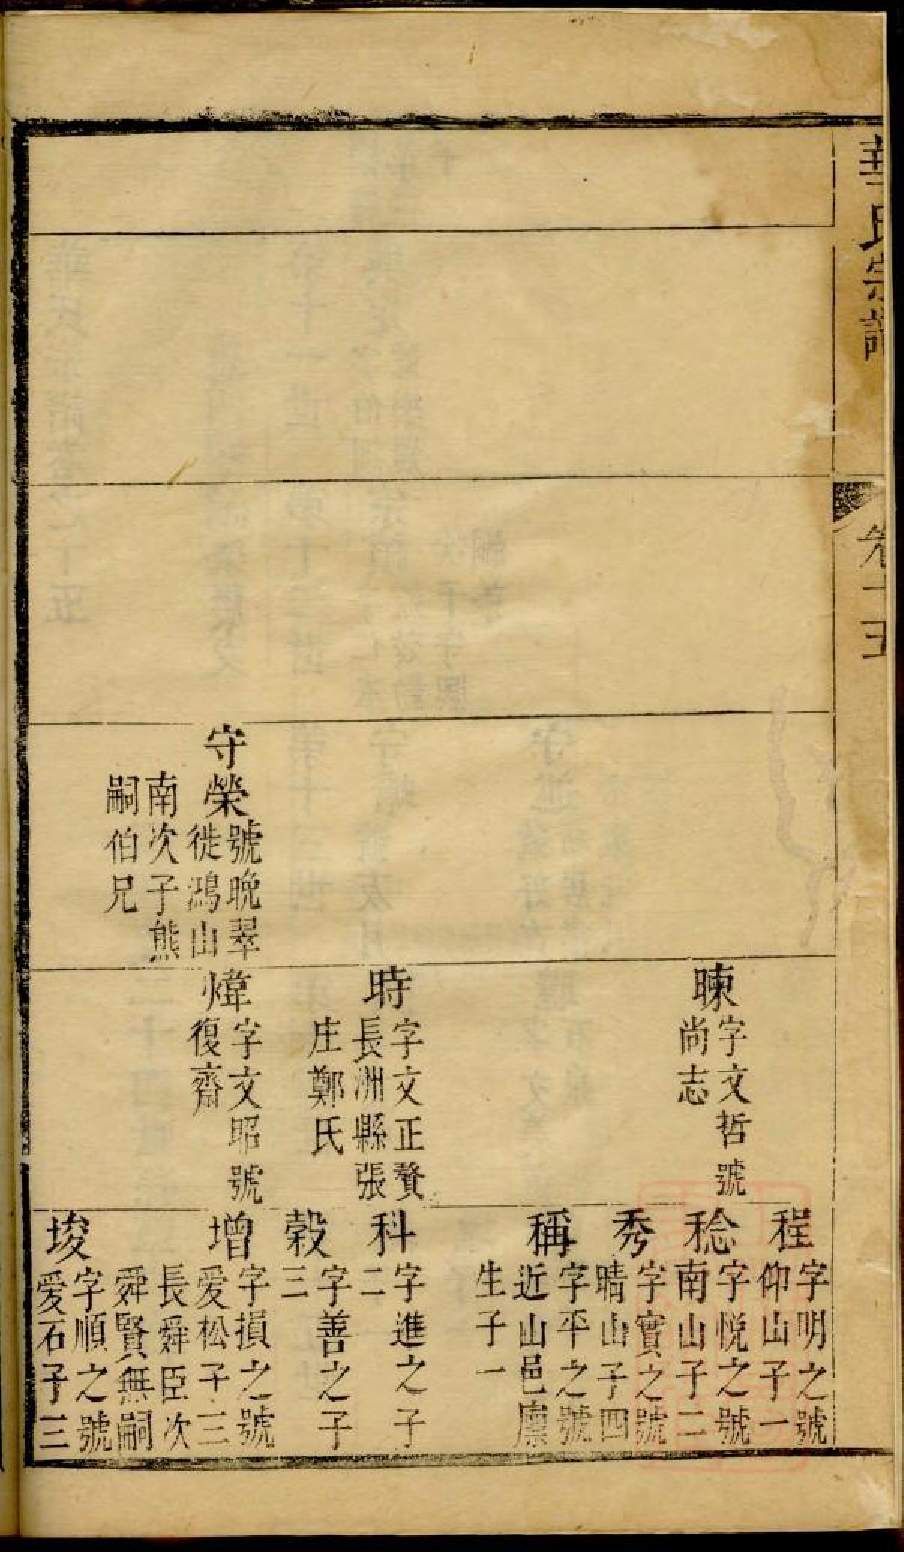 華氏宗譜
卷十五
守榮
號晚翠
徙鴻山
南次子熊
嗣伯兄
暕
字文哲號
尚志
時
字文正贅
長洲縣張
庄鄭氏
煒
字文昭號
復齋
程
字明之號
仰山子一
稔
字悅之號
南山子二
秀
字實之號
晴山子四
稱
字平之號
近山邑廩
生子一
科
字進之子
二
穀
字善之子
三
增
字損之號
愛松子三
長舜臣次
舜賢無嗣
埈
字順之號
愛石子三